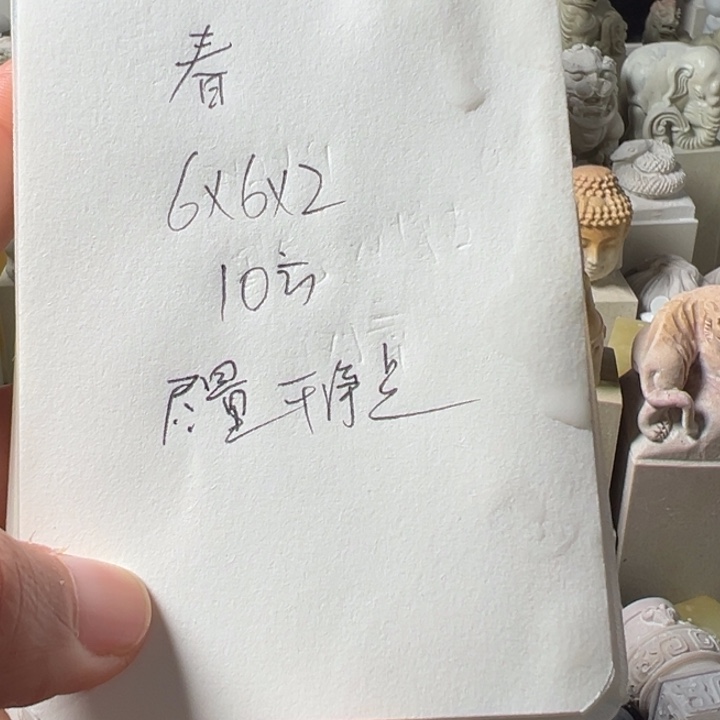 春
6x6x2
10方
尽量干净点